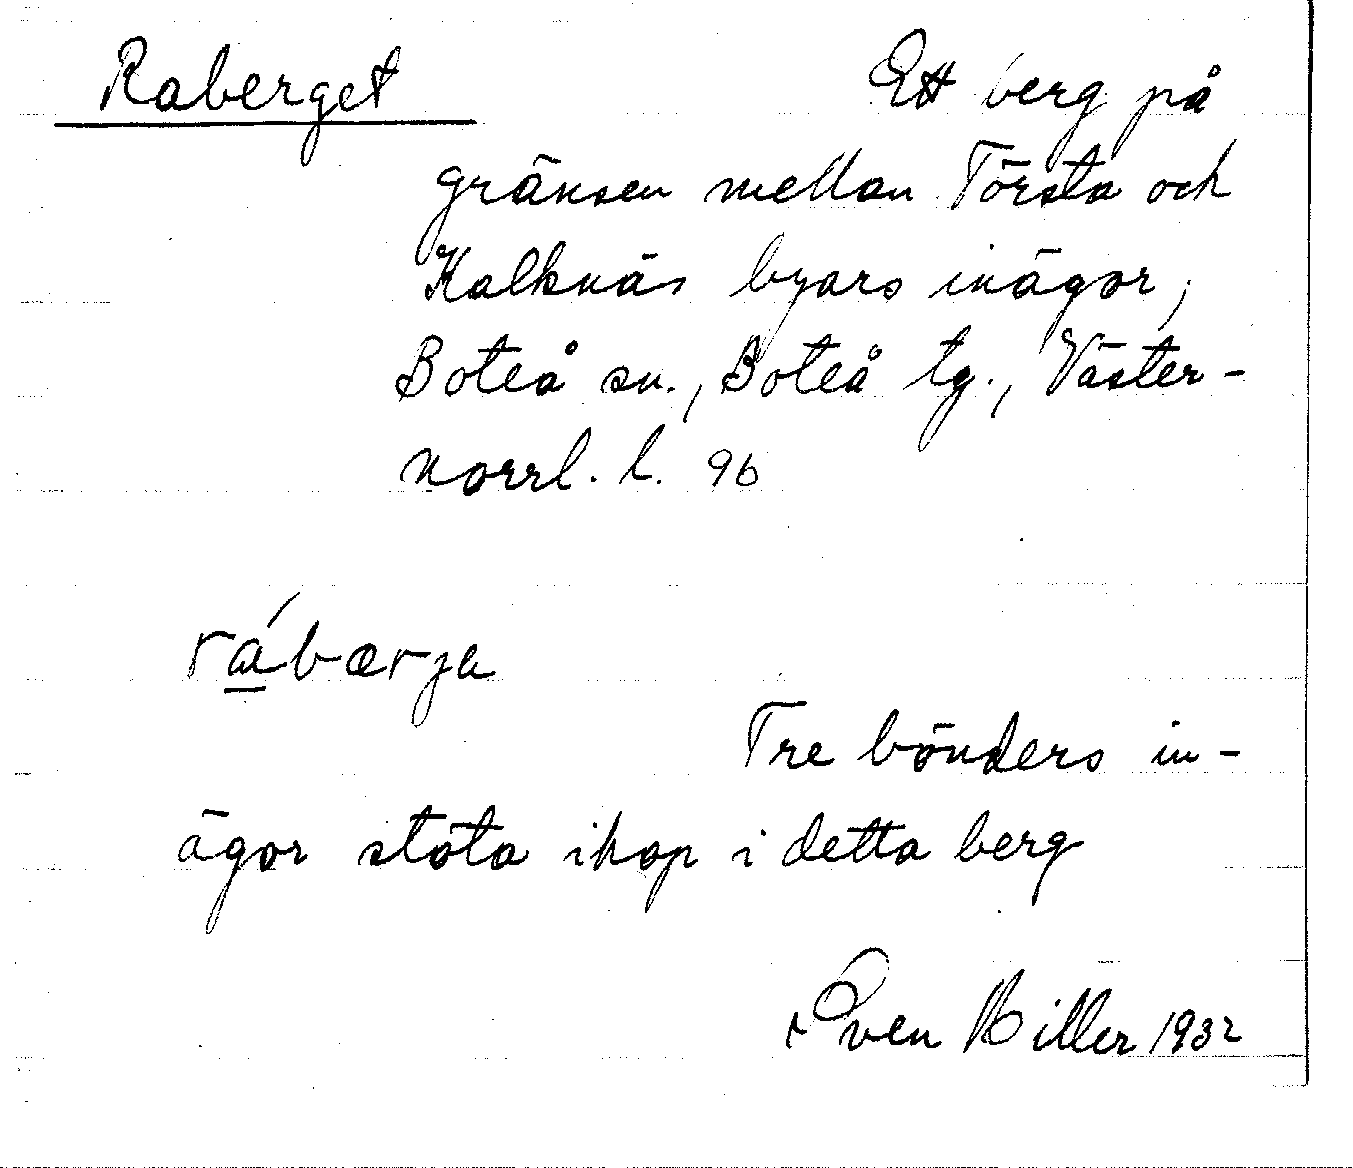 Raberget Ett berg på
gränsen mellan Törsta och
Kalknäs byars inägor,
Boteå sn., Boteå tg., Väster-
norrl. l. 96
rábærja
Tre bönders in-
ägor stöta ihop i detta berg
Sven Hiller 1932